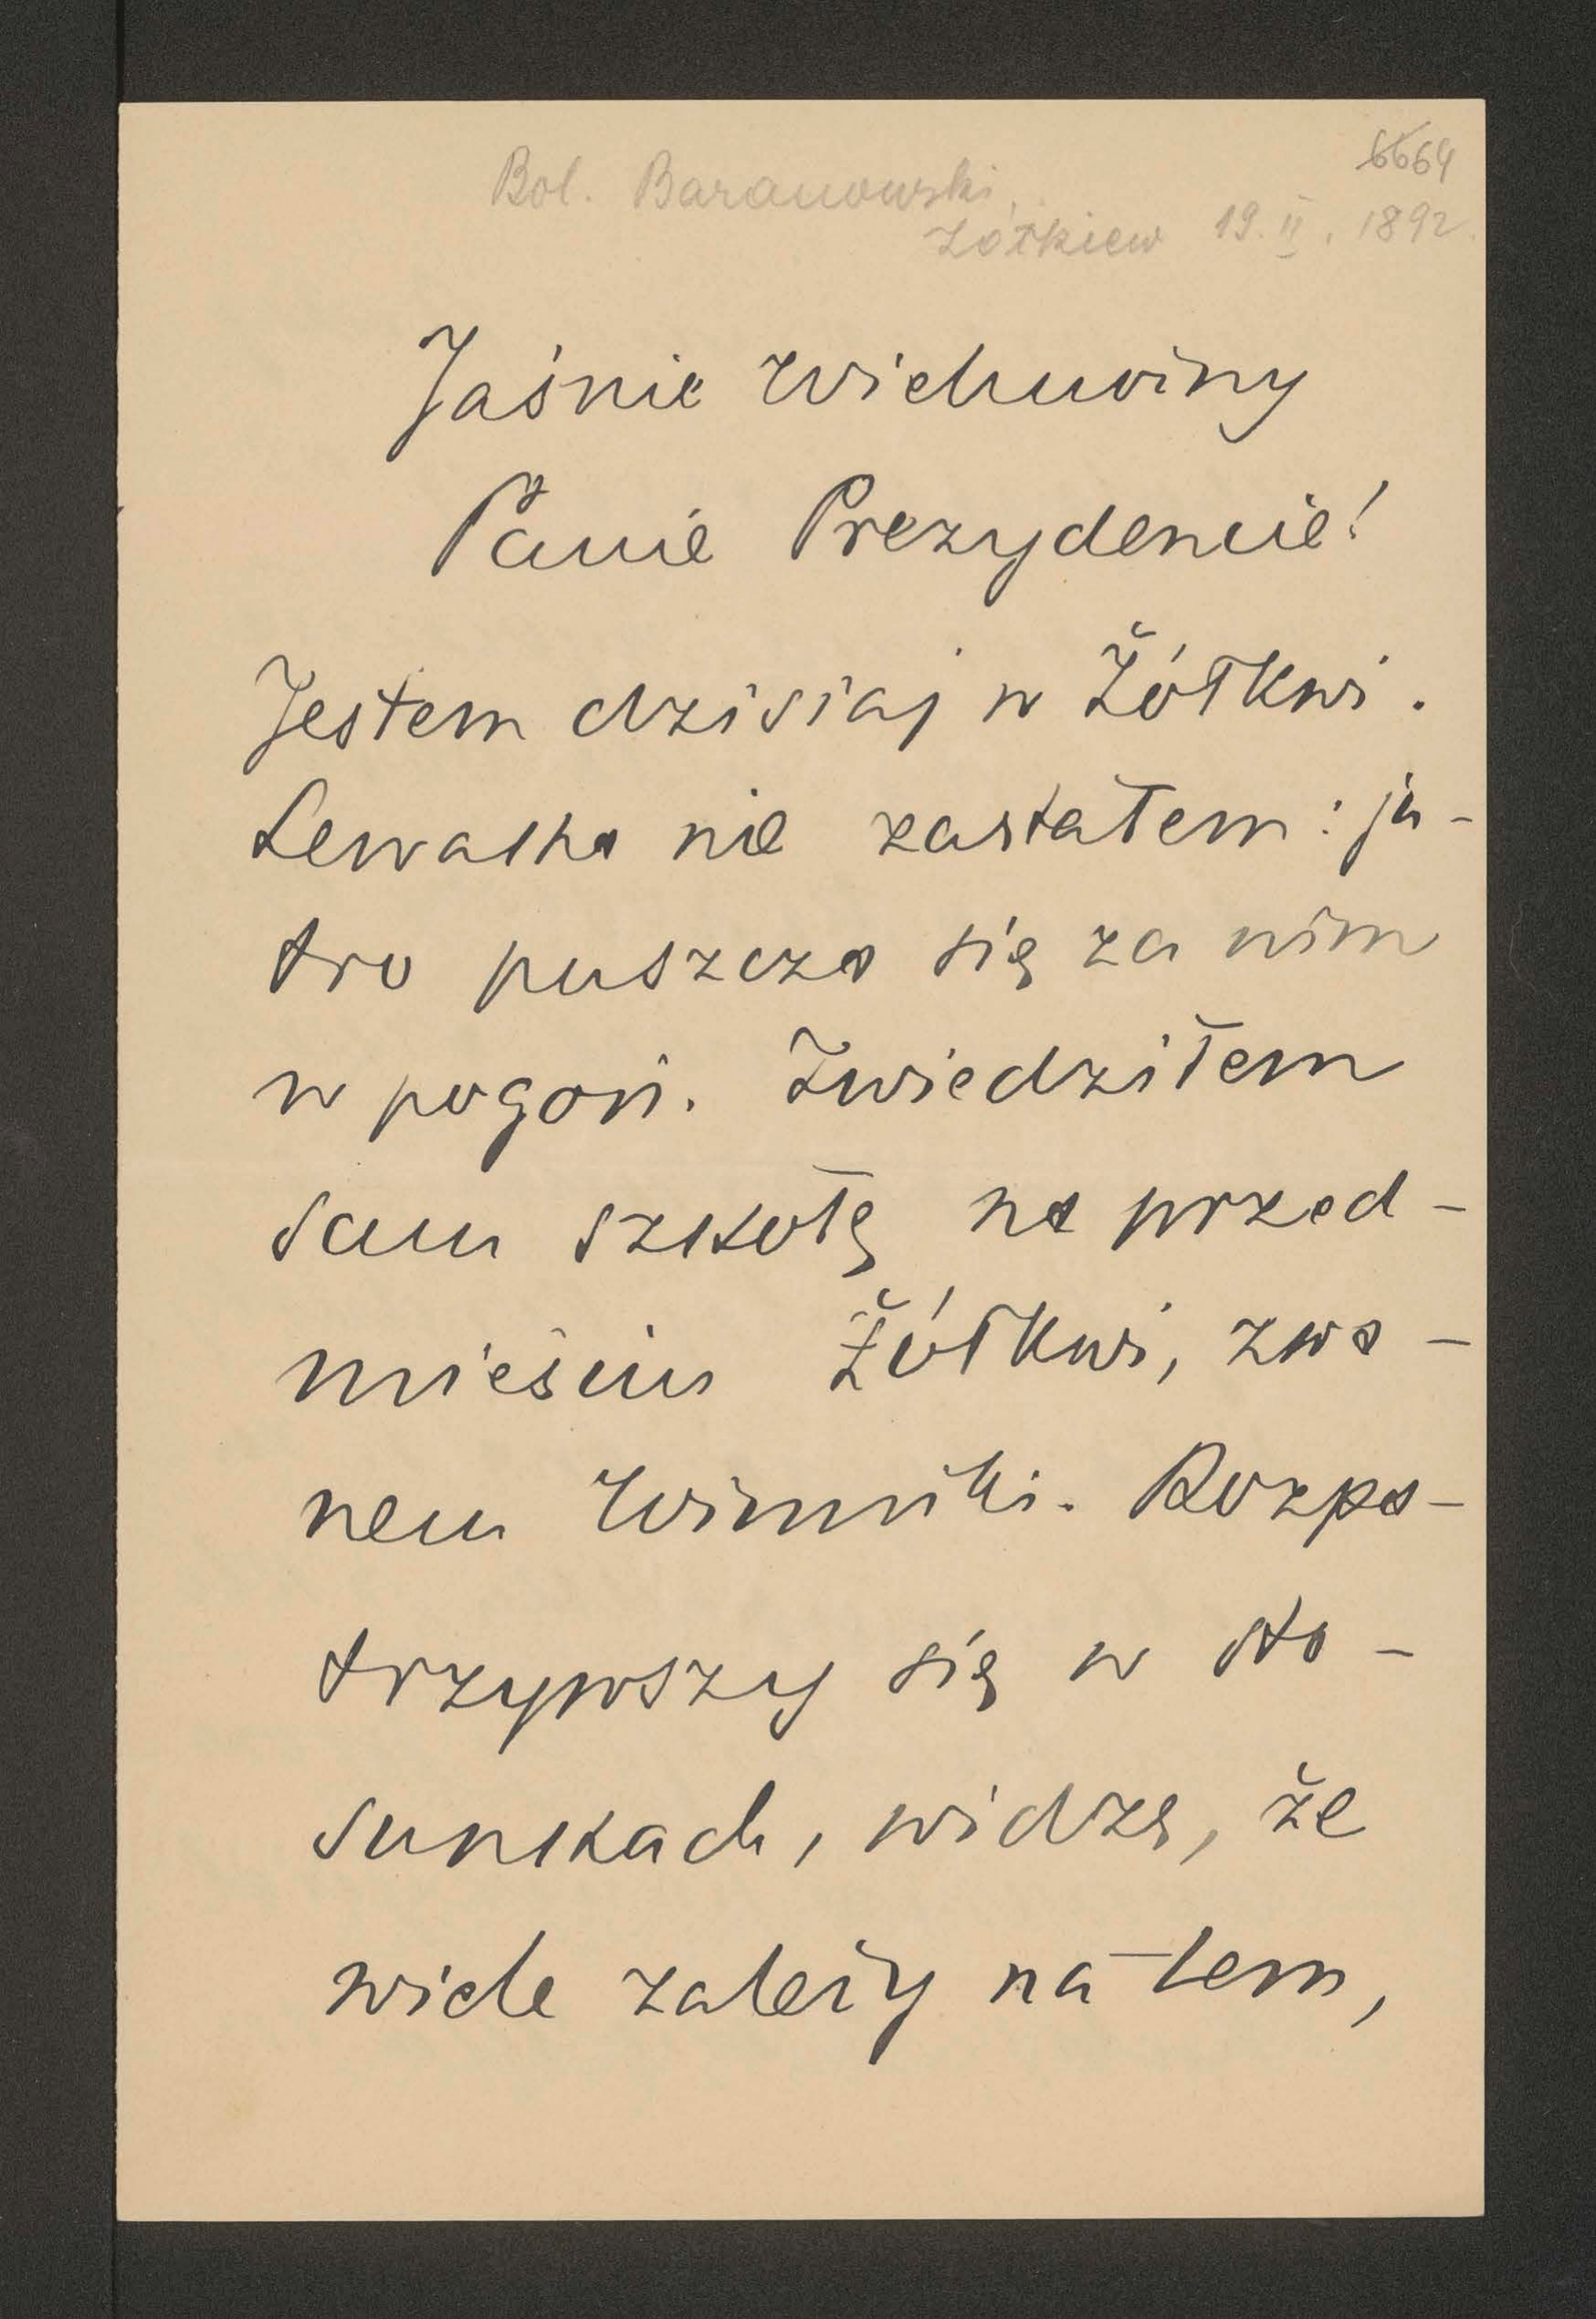 6664
Bol. Baranowski,
Żółkiew 19. II. 1892.
Jaśnie Wielmożny
Panie Prezydencie!
Jestem dzisiaj w Żółkwi.
nie zastałem: ju-
tro puszczę się za nim
w pogoń. Zwiedziłem
sam szkołę na przed-
mieściu Żółkwi, zwa-
nem Winniki. Rozpa-
trzywszy się w sto-
sunkach, widzę, że
wiele zależy na tem,